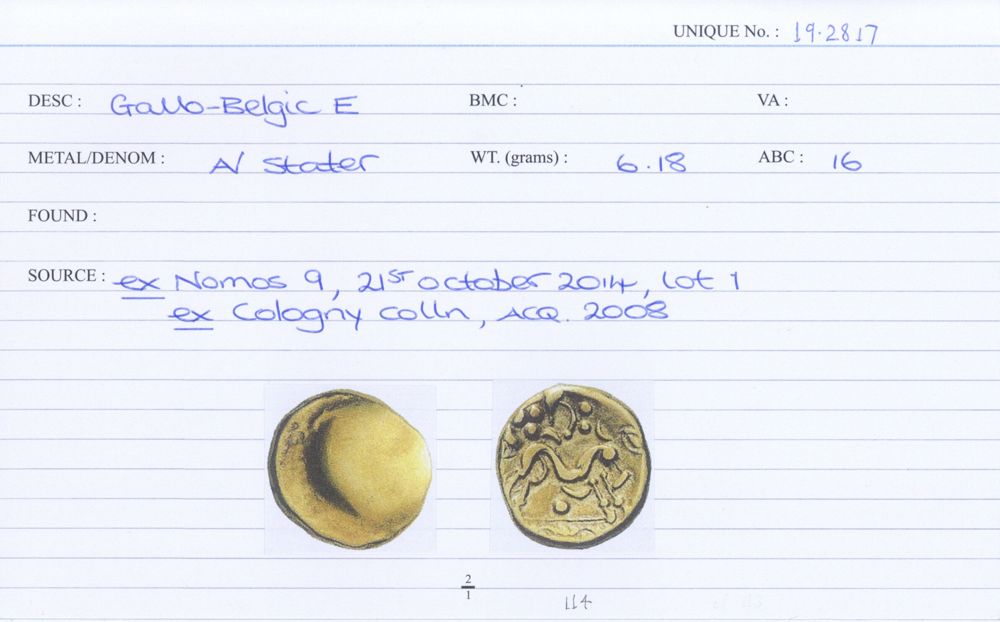 UNIQUE No. : 19.2817
DESC : Gallo-Belgic E BMC : VA :
METAL/DENOM : A/ Stater WT. (grams) : 6.18 ABC : 16
FOUND :
SOURCE : ex Nomos 9, 21ST October 2014, Lot 1
ex Cologny colln, ACQ. 2008
2/1
114